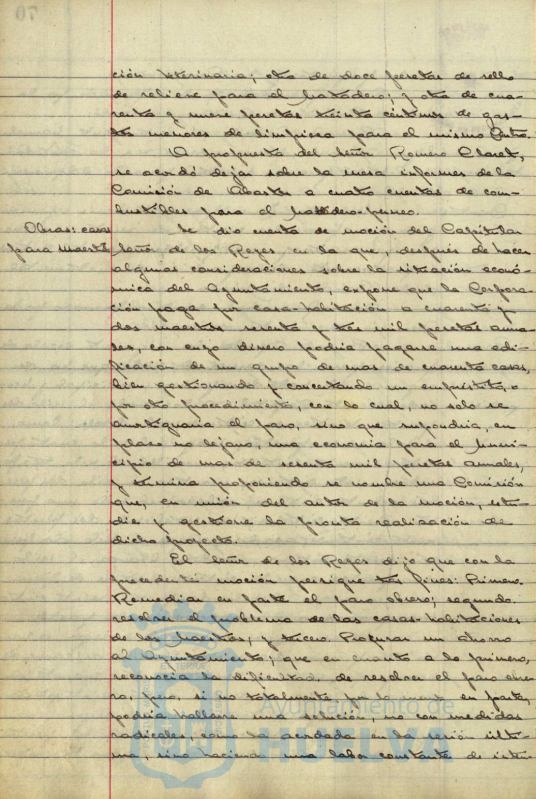 70
ción Veterinaria; otra de doce pesetas de sello
de relieve para el Matadero; y otra de cua-
renta y nueve pesetas treinta céntimos de gas-
tos menores de limpieza para el mismo Centro.
A propuesta del Señor Romero Claret,
se acordó dejar sobre la mesa informes de la
Comisión de Abastos a cuatro cuentas de com-
bustibles para el Matadero-
Obras: casas
para maestros
Se dio cuenta de moción del Capitular
Señor de los Reyes en la que, después de hacer
algunas consideraciones sobre la situación econó-
mica del Ayuntamiento, expone que la Corpora-
ción paga por casa-habitación a cuarenta y
dos maestros sesenta y tres mil pesetas anua-
les, con cuyo dinero podría pagarse una edi-
ficación de un grupo de mas de cuarenta casas,
bien gestionando y concertando un empréstito, o
por otro procedimiento, con lo cual, no solo se
amortiguaría el paro, sino que supondría, en
plazo no lejano, una economía para el Muni-
cipio de mas de sesenta mil pesetas anuales,
y termina proponiendo se nombre una Comisión
que, en unión del autor de la moción, estu-
die y gestione la pronta realización de
dicho proyecto.
El Señor de los Reyes dijo que con la
precedente moción persigue tres fines: Primero.
Remediar en parte el paro obrero; segundo.
resolver el problema de las casas-habitaciones
de los Maestros; y tercero. Procurar un ahorro
al Ayuntamiento; que en cuanto a lo primero,
reconocía la dificultad de resolver el paro obre-
ro; pero, si no totalmente, por lo menos en parte,
podría hallarse una solución, no con medidas
radicales, como la acordada en la sesión últi-
ma, sino haciendo una labor constante de
Ayuntamiento de
HUELVA